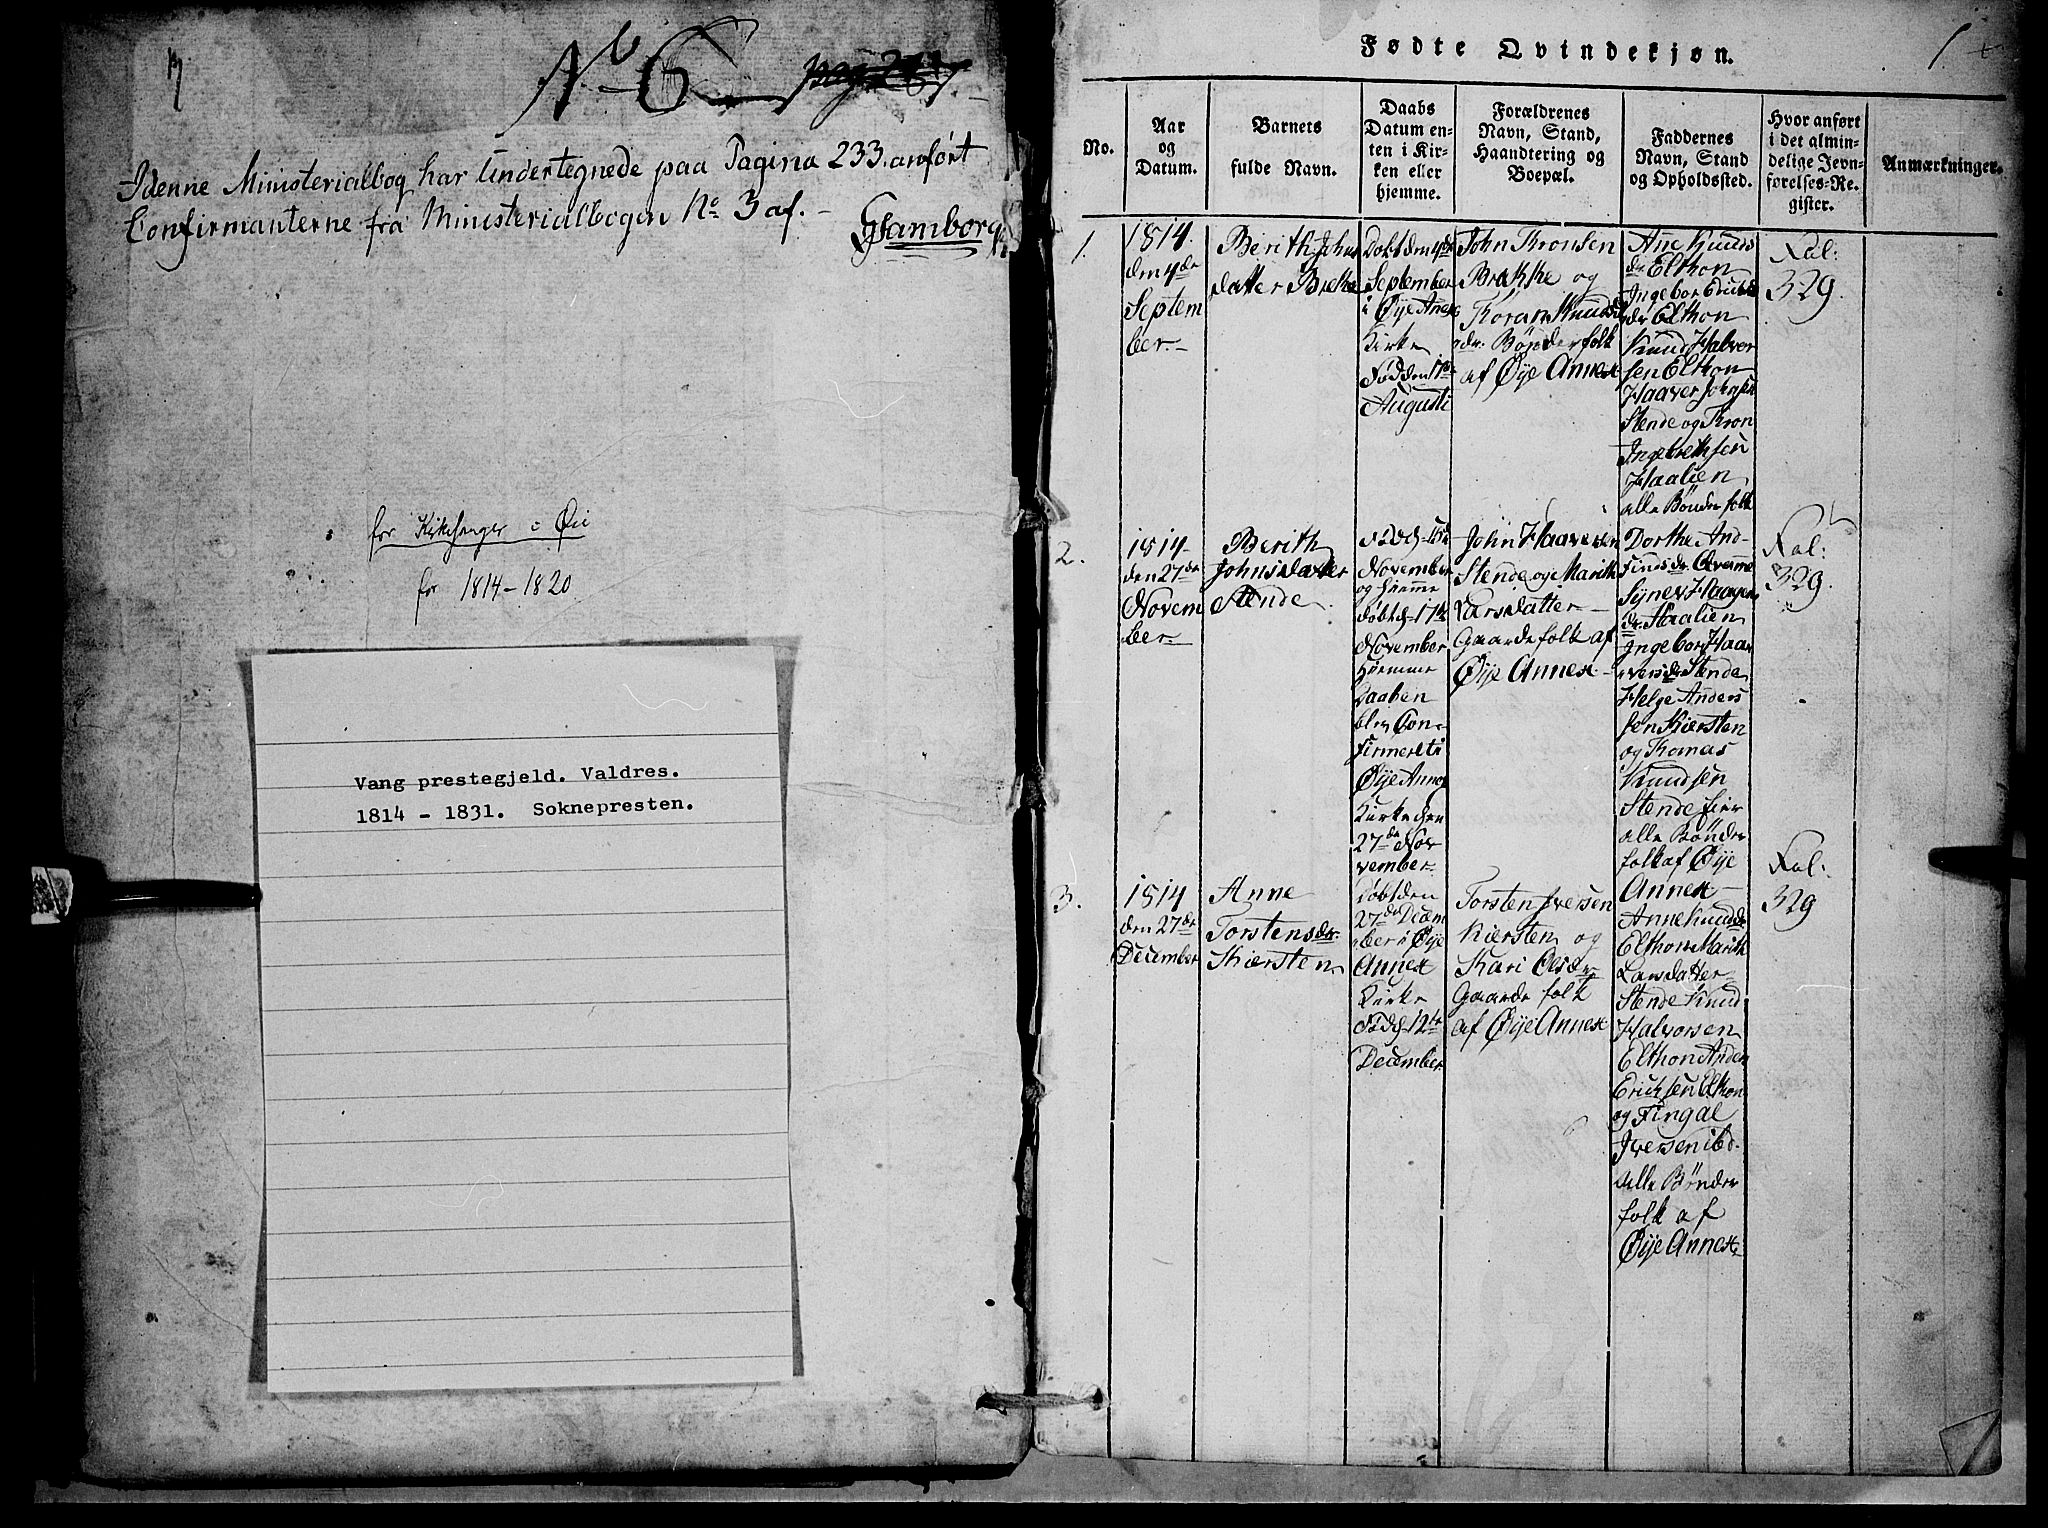 No 6
Idenne Ministerialbog har Undertegnede paa Pagina 233. anført
Confirmanterne fra Ministerialbogen No 3 af. -
for Kirkesanger i Øie
for 1814-1820
Vang prestegjeld. Valdres.
1814 - 1831. Soknepresten.
1
Fødte Qvindekjøn.
No.
Aar
og
Datum.
Barnets
fulde Navn.
Daabs
Datum en-
ten i Kir-
ken eller
hjemme.
Forældrenes
Navn, Stand,
Haandtering og
Boepæl.
Faddernes
Navn, Stand
og Opholdssted.
Hvor anført
i det almin-
delige Jevn-
førelses-Re-
gister.
Anmærkninger.
1.
1814.
den 4de
Septem
ber.-
Berith Johns
datter Brekke
Døbt den 4de
September
i Øye Anex
Kirke
Fød den 17de
Augusti
John Thronsen
Brekke og
Thoran Knuds
dr. Bønderfolk
af Øye Annex
Anne Knuds
dr Elthon
Ingebor Ericks
dr Elthon
Knud Halver
sen Elthon
Haaver Johnsen
Stende og Thron
Ingebrethsen
Haalien
alle Bønder folk
Fol:
329.
2.
1814-
den 27de
Novem
ber.-
Berith
Johnsdatter
Stende.
November
og hiemme
døbt d. 17de
November
Hiemme
Daaben
blev Con-
firmeret i
Øye Annex
Kirke den
27de No-
vember.
John Haaversen
Stende og Marith
Larsdatter -
Gaardefolk af
Øye Annex -
Dorthe And-
finds dr Qvamme
Synev Haagens
dr Haalien
Ingebor Haa-
vers dr Stende
Helge Anders
sen Kiersten
og Thomas
Knudsen
Stende
alle Bønder
folk af Øye
Annex -
Fol:
329.
3.
1814
den 27de
December
Anne
Torstensdr.
Kiersten
Døbt den
27de Decem
ber i Øye
Annex
Kirke
Fød d. 12te
December
Torsten Iversen
Kiersten og
Kari Olsdr
Gaarde folk
af Øye Annex
Anne Knudsdr
Elthon Marith
Larsdatter
Stende Knud
Halvorsen
Elthon Anders
Ericksen Elthon
og Fingal
Iversen ibd.
alle Bønder
folk af
Øye Annex
Fol:
329